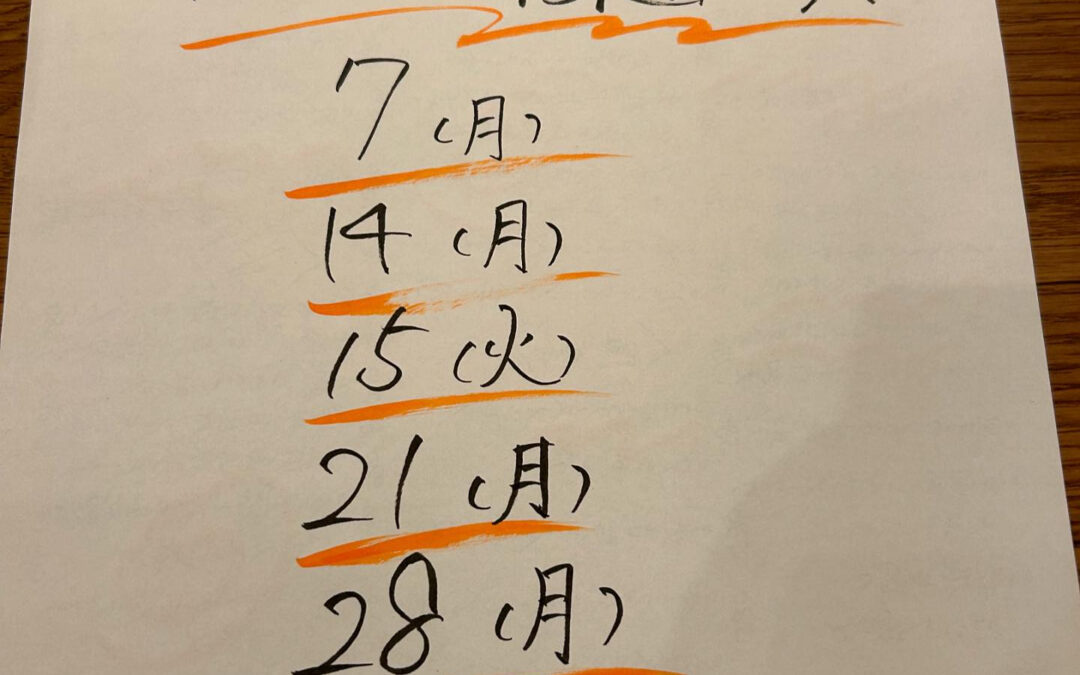 7(月)
14(月)
15(火)
21(月)
28(月)